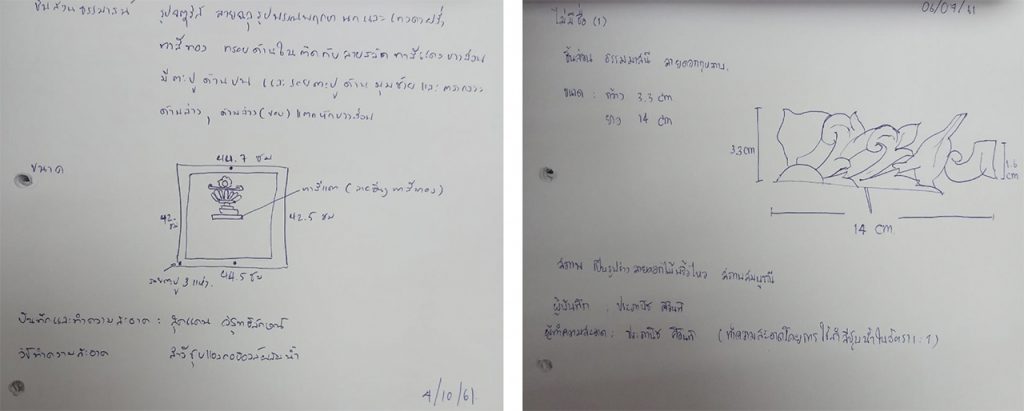 ชิ้นส่วนธรรมาสน์
รูปจตุรัส ลายฉลุรูปพรรณพฤกษา นก และ
ทาสีทอง กรอบด้านใน ติดกับลาย ทาสีแดงบางส่วน
มีตะปู ด้านบน และรอยตะปูด้านมุมซ้าย และตรงกลาง
ด้านล่าง, ด้านล่าง (ขอบ) แตกหักบางส่วน
ขนาด
44.7 ซม
42. ซม
42.5 ซม
44.5 ซม
ทาสีแดง ( ทาสีทอง)
รอยตะปู 3 แห่ง.
บันทึกและทำความสะอาด :
วิธีทำความสะอาด สำลีชุบแอลกอฮอล์ผสมน้ำ
4/10/61
06/09/61
ไม่มีชื่อ (1)
ชิ้นส่วน ธรรมมาสน์ ลายดอก
ขนาด : กว้าง 3.3 cm
ยาว 14 cm
3.3 cm
1.6 cm
14 cm.
สภาพ เป็นรูปร่างลายดอกไม้ สภาพสมบูรณ์
ผู้บันทึก :
ผู้ทำความสะอาด : (ทำความสะอาดโดยการใช้สำลีชุบน้ำในอัตรา 1 : 1)